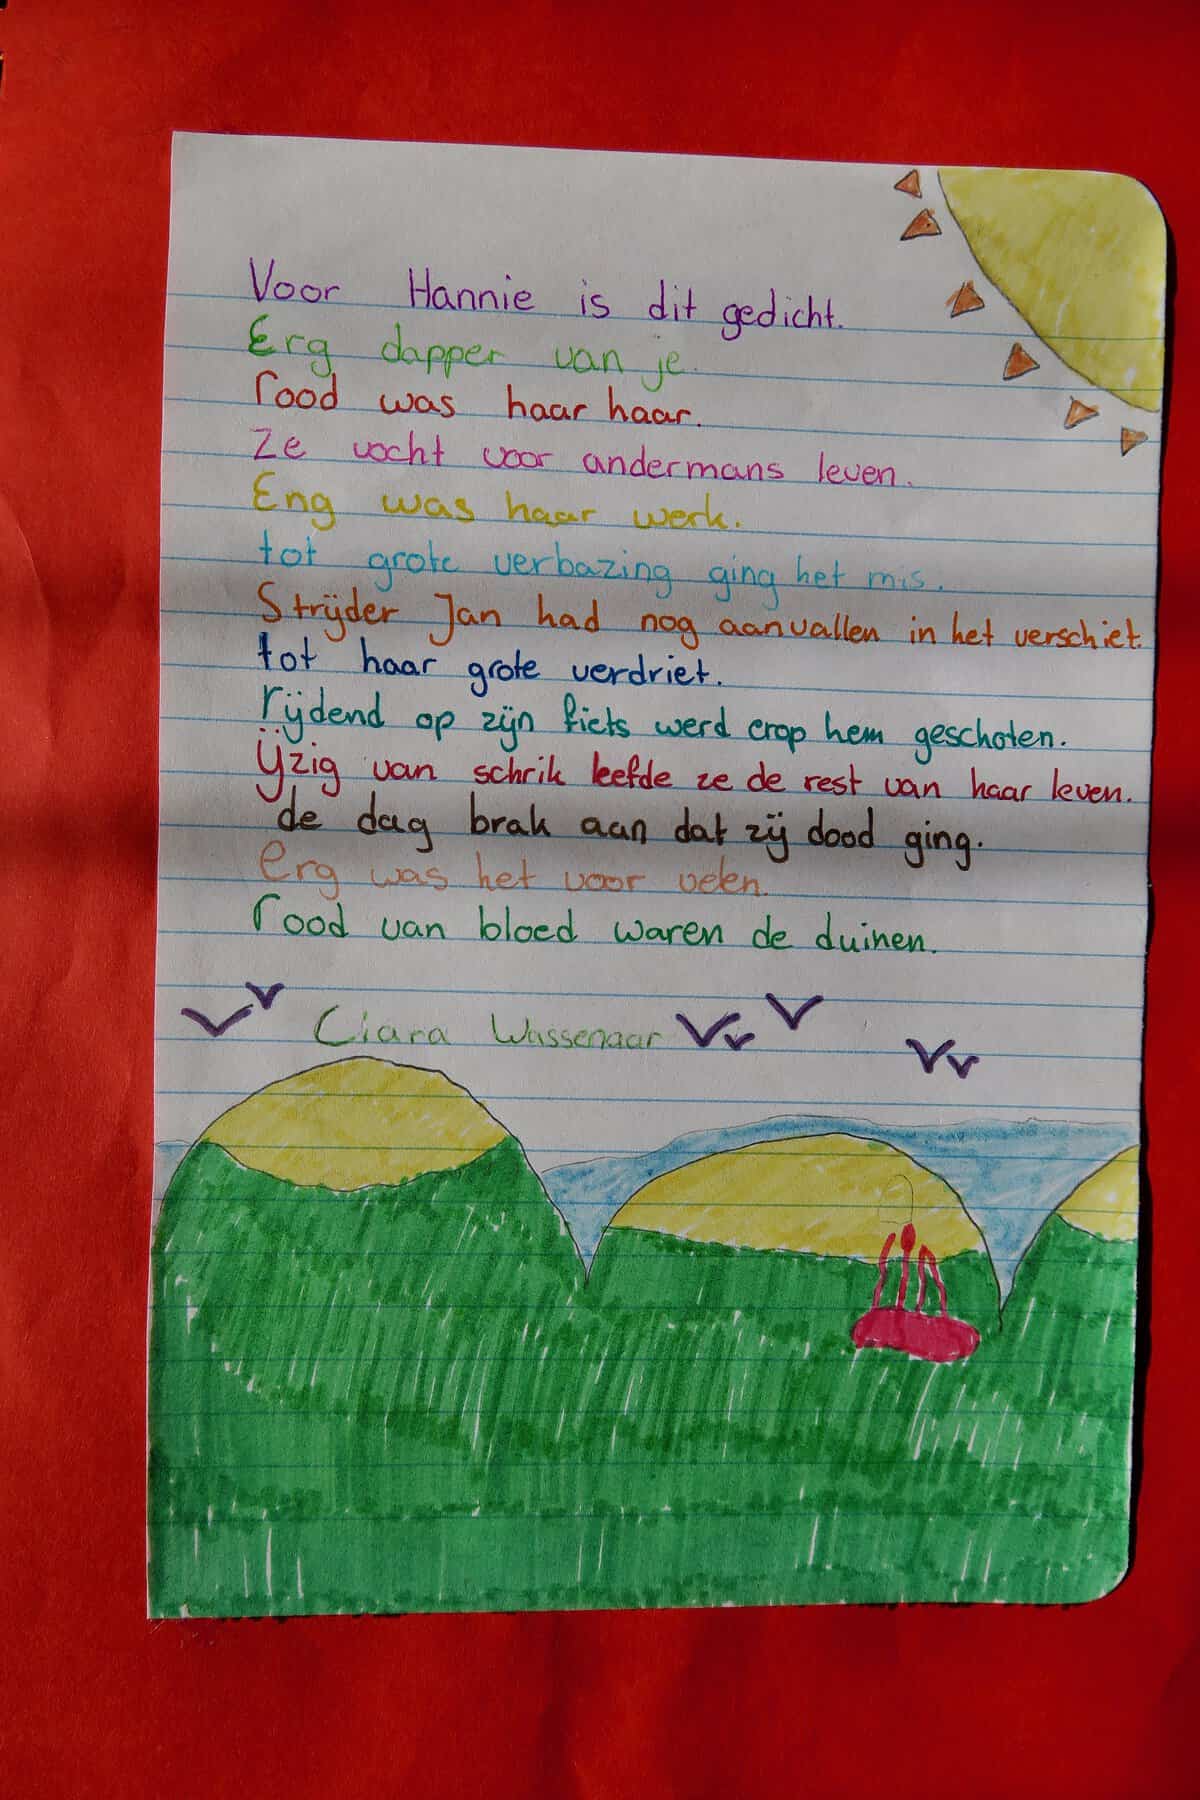 Voor Hannie is dit gedicht.
Erg dapper van je.
rood was haar haar.
Ze vocht voor andermans leven.
Eng was haar werk.
tot grote verbazing ging het mis.
Strijder Jan had nog aanvallen in het verschiet.
tot haar grote verdriet.
rijdend op zijn fiets werd erop hem geschoten.
ijzig van schrik leefde ze de rest van haar leven.
de dag brak aan dat zij dood ging.
erg was het voor velen.
rood van bloed waren de duinen.
Ciara Wassenaar